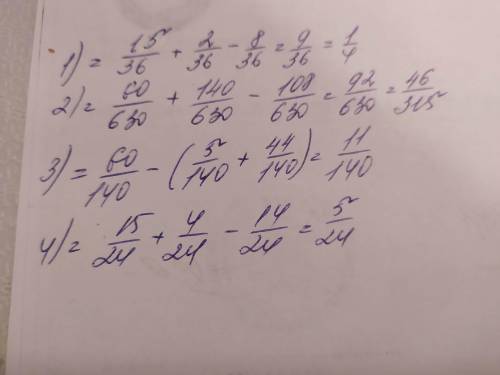 1) = 15/36 + 2/36 - 8/36 = 9/36 = 1/4
2) = 60/630 + 140/630 - 108/630 = 92/630 = 46/315
3) = 60/140 - (5/140 + 44/140) = 11/140
4) = 15/24 + 4/24 - 14/24 = 5/24